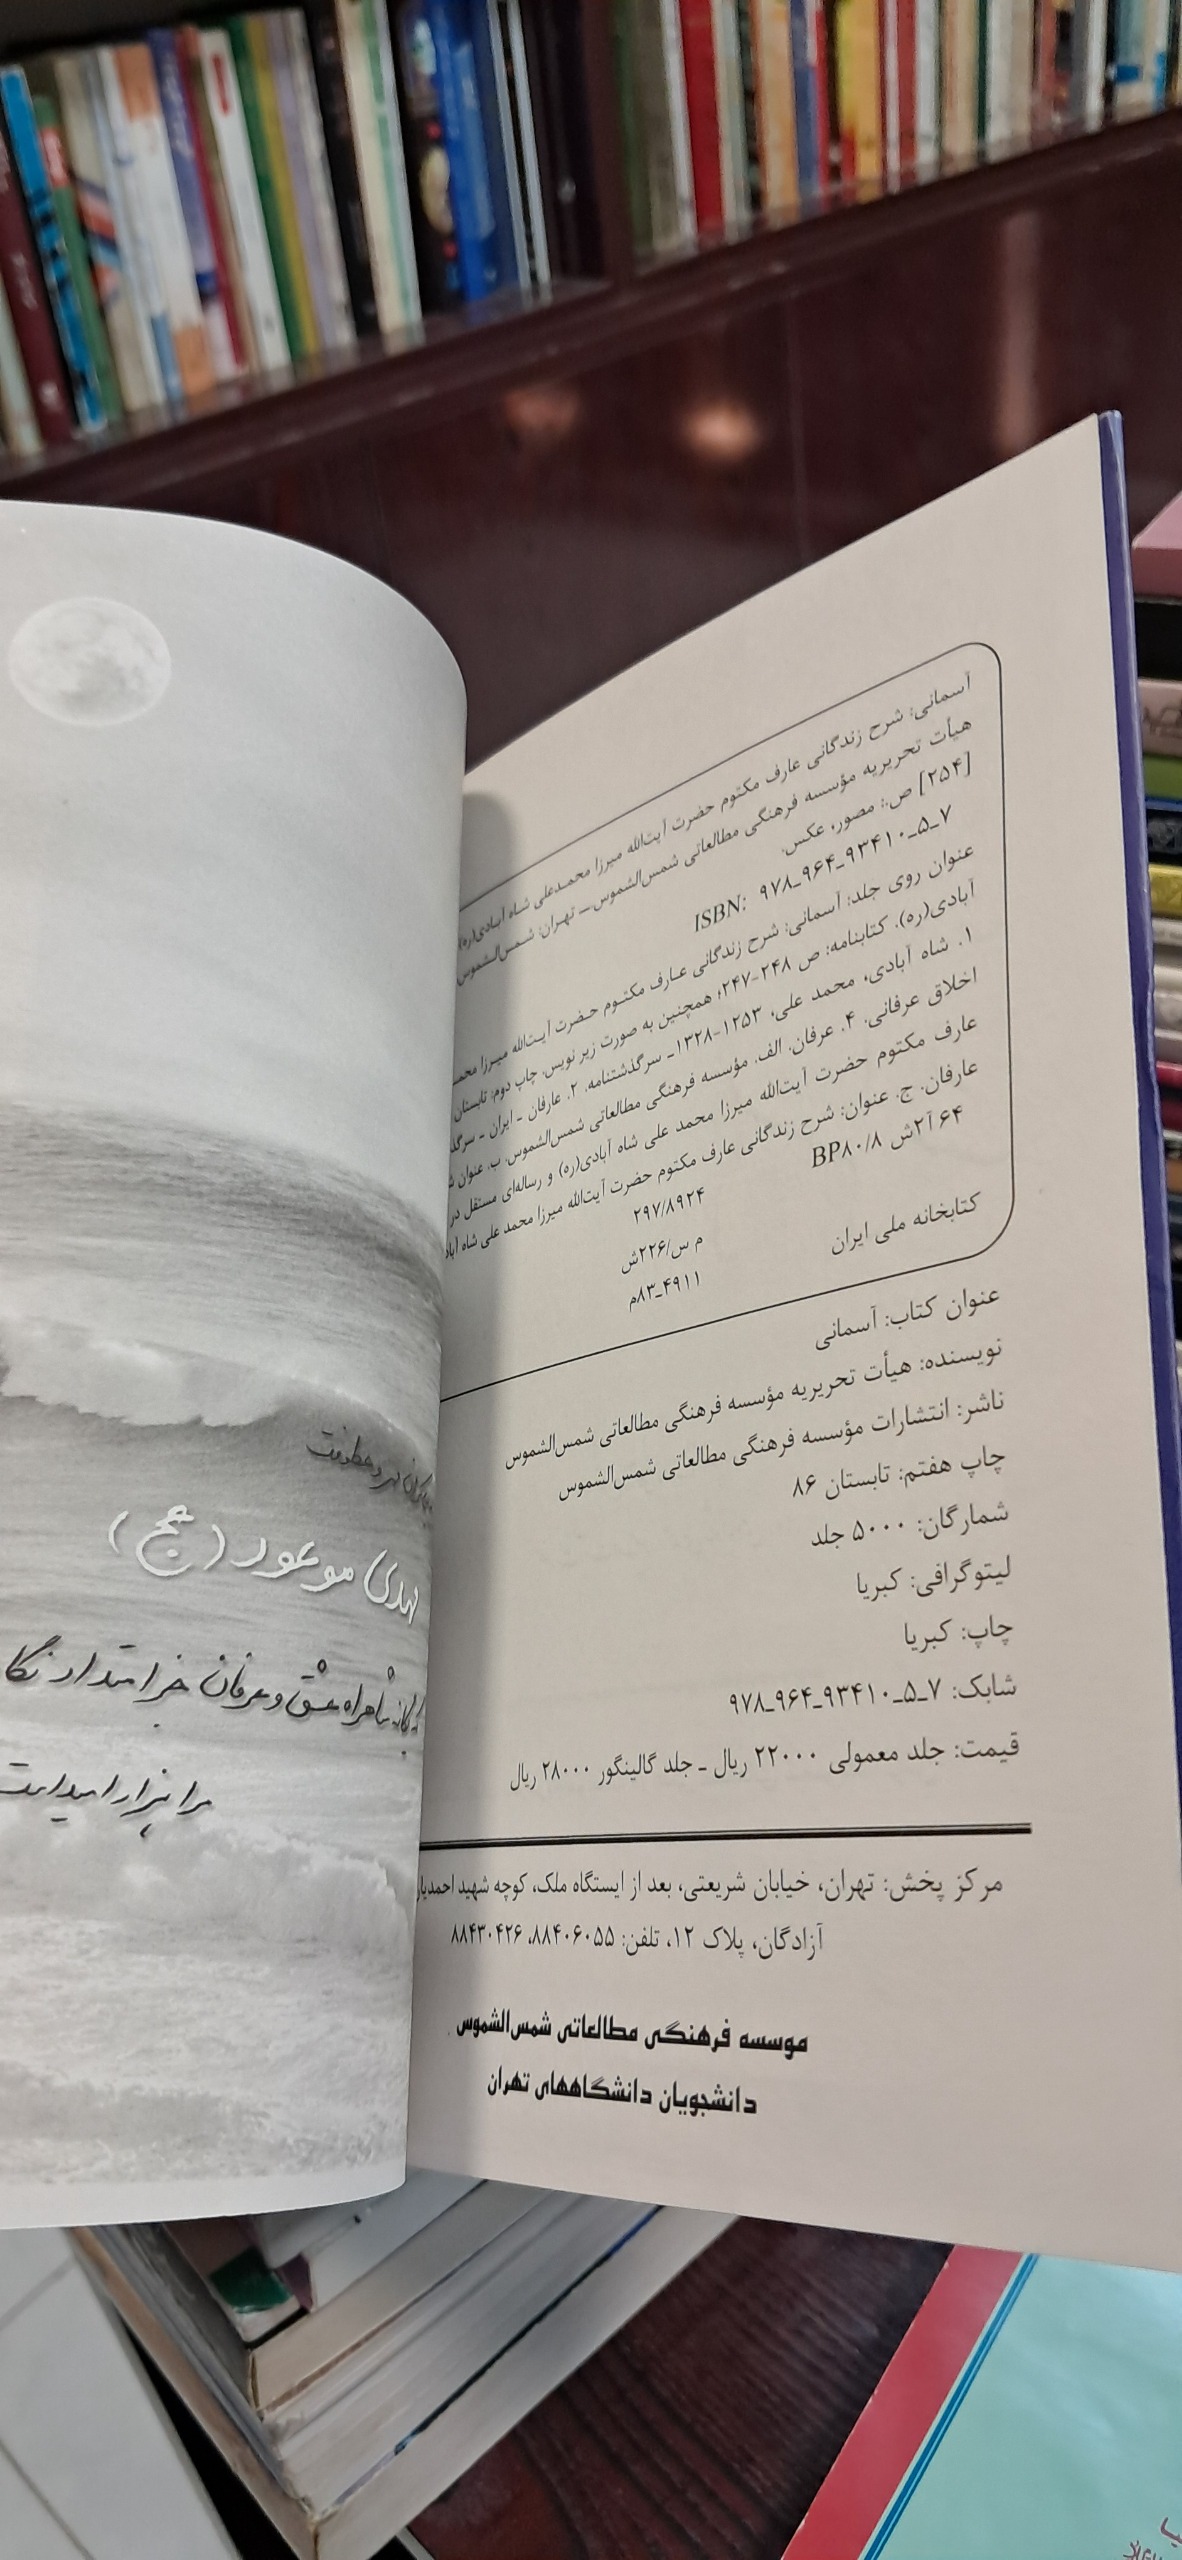 آسمانی: شرح زندگانی عارف مکتوم حضرت آیت‌الله میرزا محمدعلی شاه آبادی(ره)
هیأت تحریریه مؤسسه فرهنگی مطالعاتی شمس‌الشموس ـ تهران: شمس‌الشموس
[۲۵۴] ص.: مصور، عکس.
ISBN: ۹۷۸_۹۶۴_۹۳۴۱۰_۵_۷
عنوان روی جلد: آسمانی: شرح زندگانی عارف مکتوم حضرت آیت‌الله میرزا محمد
آبادی(ره). کتابنامه: ص ۲۴۸-۲۴۷؛ همچنین به صورت زیر نویس. چاپ دوم: تابستان
۱. شاه آبادی، محمد علی، ۱۲۵۳-۱۳۲۸ـ سرگذشتنامه. ۲. عارفان ـ ایران ـ
اخلاق عرفانی. ۴. عرفان. الف. مؤسسه فرهنگی مطالعاتی شمس‌الشموس. ب. عنوان
عارف مکتوم حضرت آیت‌الله میرزا محمد علی شاه آبادی(ره) و رساله‌ای مستقل در
عارفان. ج. عنوان: شرح زندگانی عارف مکتوم حضرت آیت‌الله میرزا محمد علی شاه
۶۴ آ۲ش BP۸۰/۸
۲۹۷/۸۹۲۴
م س/۲۲۶ش
کتابخانه ملی ایران
۴۹۱۱_۸۳م
عنوان کتاب: آسمانی
نویسنده: هیأت تحریریه مؤسسه فرهنگی مطالعاتی شمس‌الشموس
ناشر: انتشارات مؤسسه فرهنگی مطالعاتی شمس‌الشموس
چاپ هفتم: تابستان ۸۶
شمارگان: ۵۰۰۰ جلد
لیتوگرافی: کبریا
چاپ: کبریا
شابک: ۷_۵_۹۳۴۱۰_۹۶۴_۹۷۸
قیمت: جلد معمولی ۲۲۰۰۰ ریال ـ جلد گالینگور ۲۸۰۰۰ ریال
مرکز پخش: تهران، خیابان شریعتی، بعد از ایستگاه ملک، کوچه شهید
آزادگان، پلاک ۱۲، تلفن: ۸۸۴۰۶۰۵۵، ۸۸۴۳۰۴۲۶
موسسه فرهنگی مطالعاتی شمس‌الشموس
دانشجویان دانشگاههای تهران
مهر و عطوفت
موعود (عج)
شاهراه عشق و عرفان